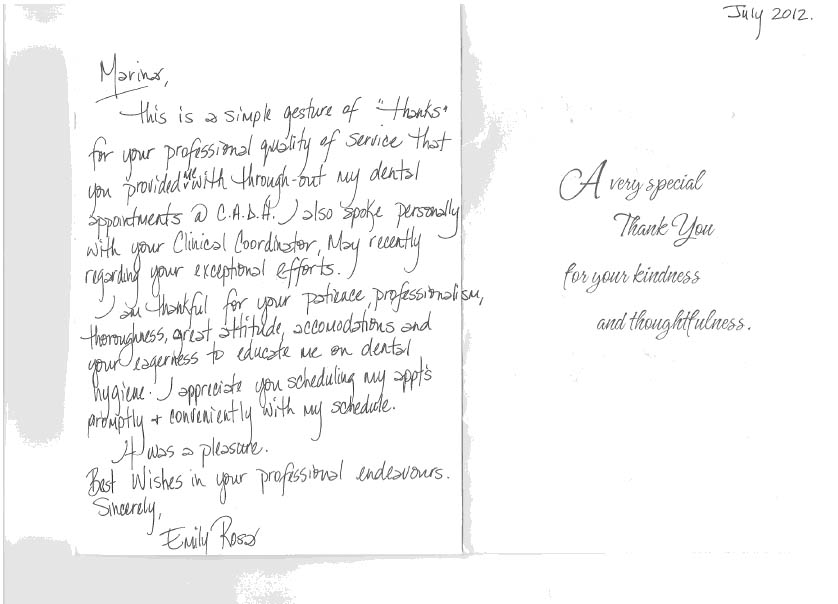 July 2012.
Marina,
This is a simple gesture of "thanks"
for your professional quality of service that
you provided me with through-out my dental
appointments @ C.A.D.H. I also spoke personally
with your Clinical Coordinator, May recently
regarding your exceptional efforts.
I am thankful for your patience, professionalism,
thoroughness, great attitude, accomodations and
your eagerness to educate me on dental
hygiene. I appreciate you scheduling my appt's
promptly + conveniently with my schedule.
It was a pleasure.
Best Wishes in your professional endeavours.
Sincerely,
Emily Rosa
A very special
Thank You
for your kindness
and thoughtfulness.